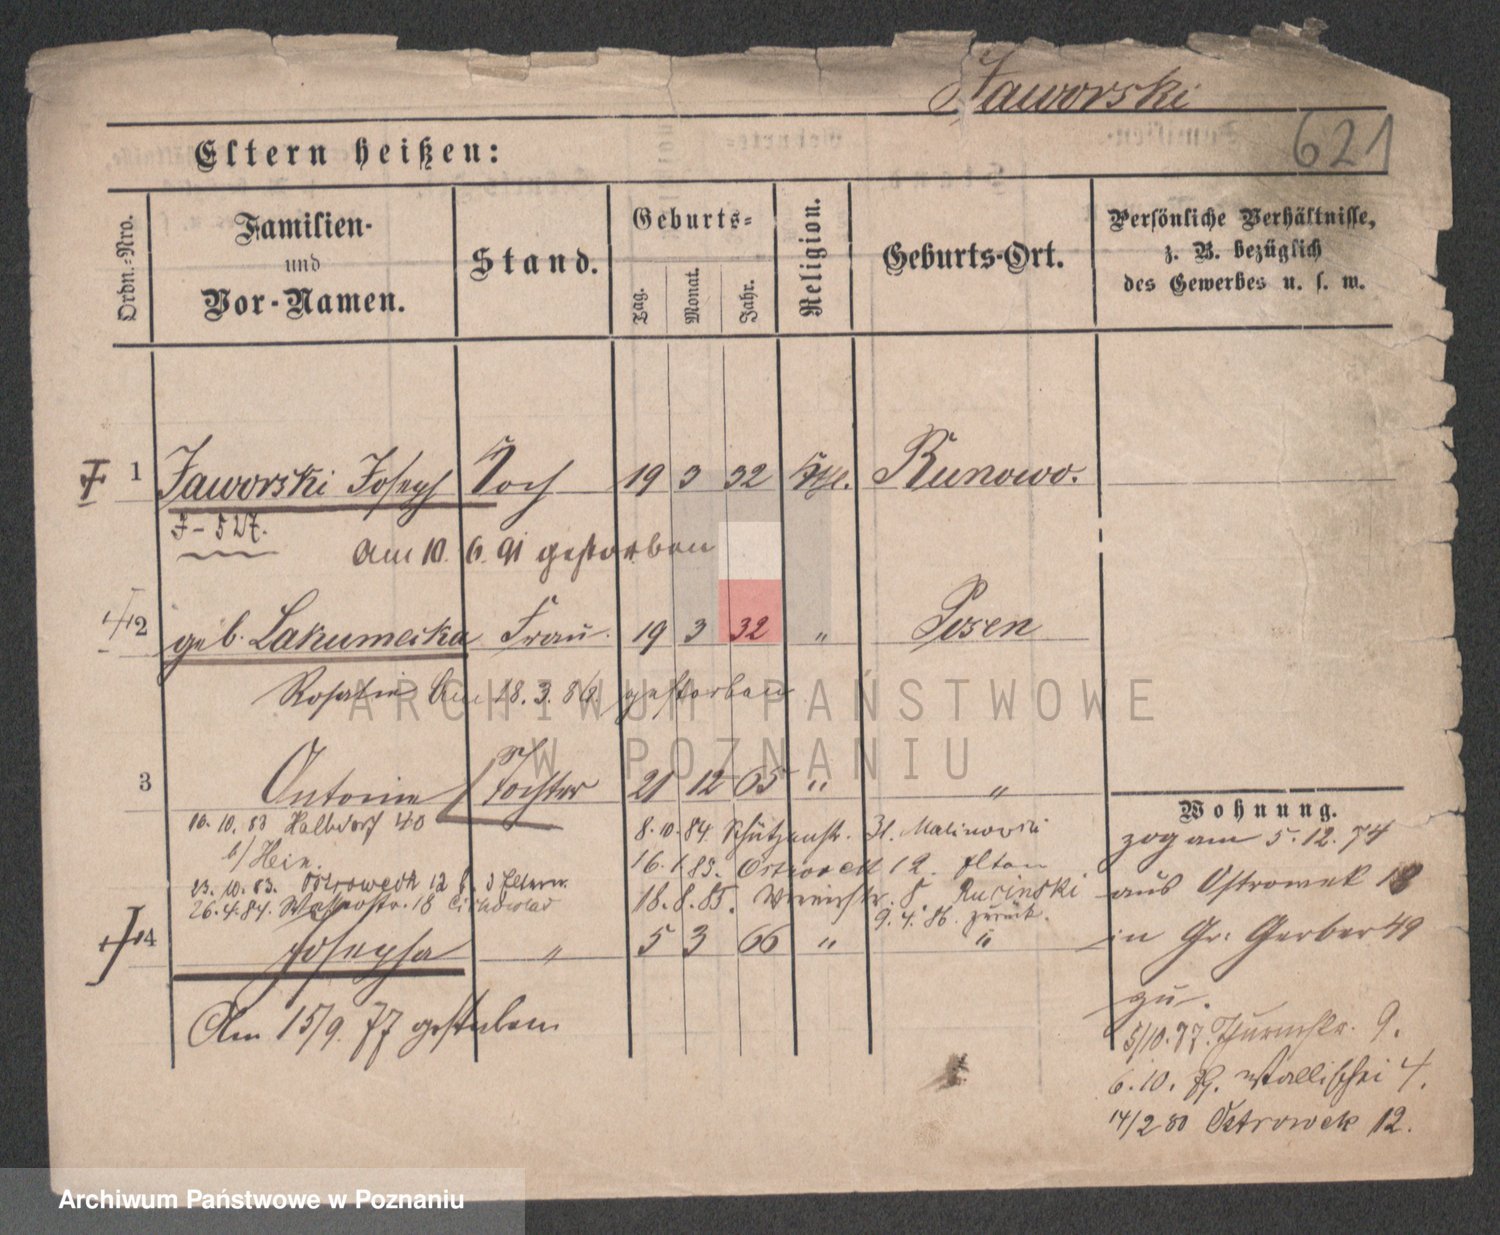 Jaworski
621
Eltern heißen:
Ordn.-Nro.
Familien-
und
Vor-Namen.
Stand.
Geburts-
Tag.
Monat.
Jahr.
Religion.
Geburts-Ort.
Persönliche Verhältnisse,
z. B. bezüglich
des Gewerbes u. s. w.
1 Jaworski Joseph 19 3 32 Runowo.
J-527.
Am 10. 6. 91 gestorben
2 geb. Lakumecka Frau. 19 3 32 " Posen
Rosalie Am 28. 3. 86 gestorben
3 Antonie Tochter 21 12 65 " "
10. 10. 83 Halbdorf 40
b/ Hein.
23. 10. 83. Ostroweck 12 b. d Eltern.
26. 4. 84. Wasserstr. 18
8. 10. 84. Schützenstr. 31. Malinowski
16. 1. 85. Ostroweck 12. Eltern
18. 8. 85. 8. Rucinski
9. 4. 86. zurück.
4 Josepha " 5 3 66 " "
Am 15/9. 77 gestorben
Wohnung.
zog am 5. 12. 74
aus Ostrowek 18
in Gr. Gerber 49
zu.
5/10. 77. Thurmstr. 9.
6. 10. 79. Wallischei 4.
14/2 80 Ostrowek 12.
ARCHIWUM PAŃSTWOWE
W POZNANIU
Archiwum Państwowe w Poznaniu